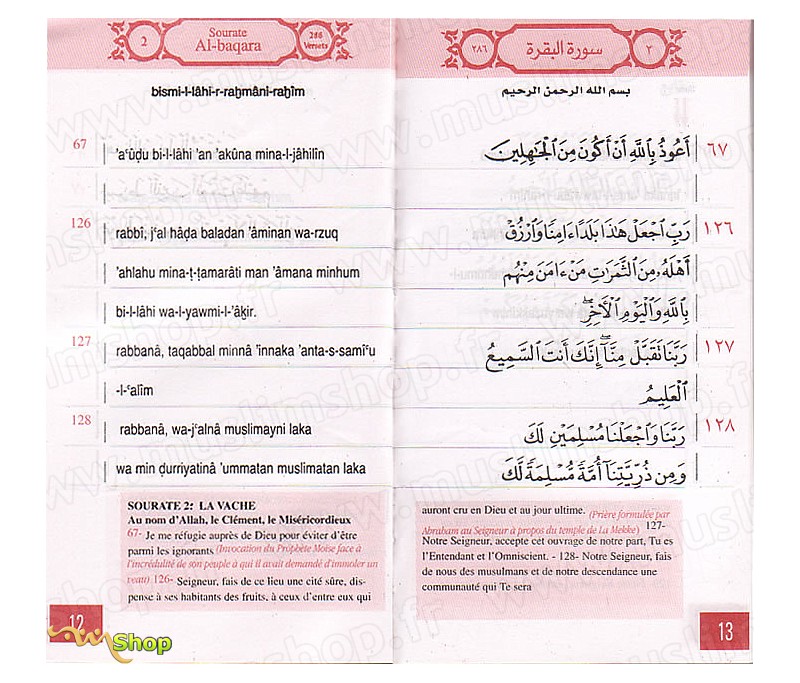 2
Sourate
Al-baqara
286
Versets
bismi-l-lâhi-r-raḥmâni-raḥîm
67
'aʿûḏu bi-l-lâhi 'an 'akûna mina-l-jâhilîn
126
rabbî, jʿal hâḏa baladan 'âminan wa-rzuq
'ahlahu mina-ṭ-ṭamarâti man 'âmana minhum
bi-l-lâhi wa-l-yawmi-l-'âḵir.
127
rabbanâ, taqabbal minnâ 'innaka 'anta-s-samîʿu
-l-ʿalîm
128
rabbanâ, wa-jʿalnâ muṣlimayni laka
wa min ḏurriyatinâ 'ummatan muslimatan laka
SOURATE 2: LA VACHE
Au nom d'Allah, le Clément, le Miséricordieux
67- Je me réfugie auprès de Dieu pour éviter d'être
parmi les ignorants (Invocation du Prophète Moïse face à
l'incrédulité de son peuple à qui il avait demandé d'immoler un
veau) 126- Seigneur, fais de ce lieu une cité sûre, dis-
pense à ses habitants des fruits, à ceux d'entre eux qui
12
Shop
٢٨٦
سورة البقرة
٢
بسم الله الرحمن الرحيم
٦٧
أَعُوذُ بِاللَّهِ أَنْ أَكُونَ مِنَ الْجَٰهِلِينَ
١٢٦
رَبِّ اجْعَلْ هَٰذَا بَلَدًا ءَامِنًا وَارْزُقْ
أَهْلَهُ مِنَ الثَّمَرَٰتِ مَنْ ءَامَنَ مِنْهُم
بِاللَّهِ وَالْيَوْمِ الْأَخِرِ
١٢٧
رَبَّنَا تَقَبَّلْ مِنَّا إِنَّكَ أَنتَ السَّمِيعُ
الْعَلِيمُ
١٢٨
رَبَّنَا وَاجْعَلْنَا مُسْلِمَيْنِ لَكَ
وَمِن ذُرِّيَّتِنَا أُمَّةً مُّسْلِمَةً لَّكَ
auront cru en Dieu et au jour ultime. (Prière formulée par
Abraham au Seigneur à propos du temple de La Mekke) 127-
Notre Seigneur, accepte cet ouvrage de notre part, Tu es
l'Entendant et l'Omniscient. - 128- Notre Seigneur, fais
de nous des musulmans et de notre descendance une
communauté qui Te sera
13
www.muslimshop.fr